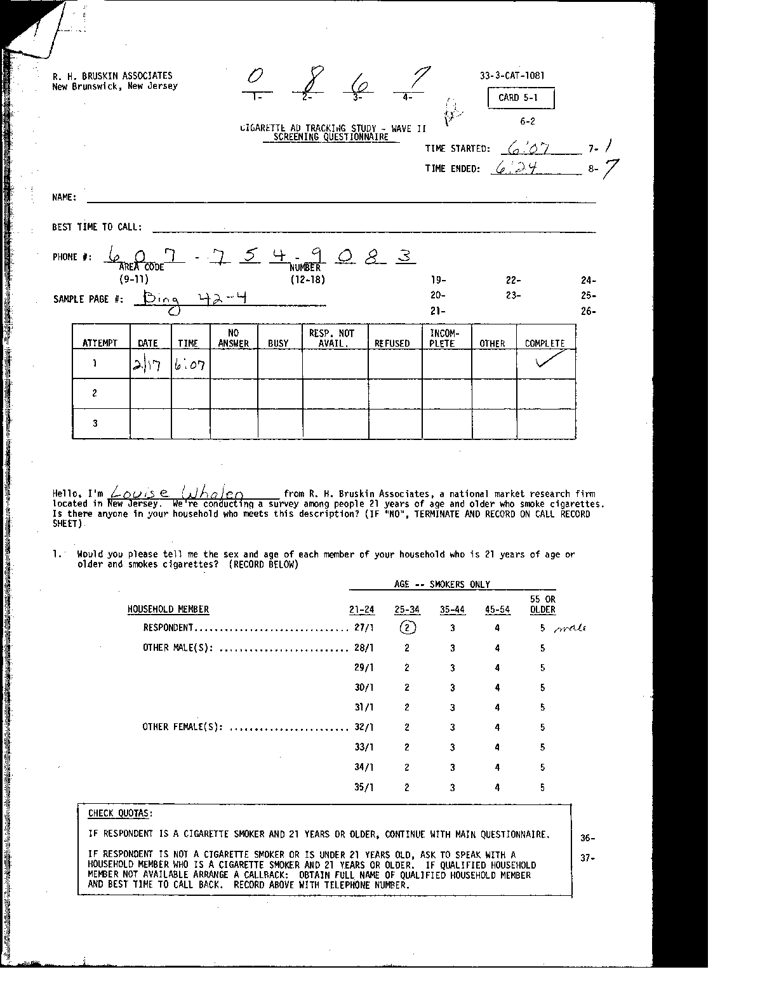 R. H. BRUSKIN ASSOCIATES
New Brunswick, New Jersey
0 8 6 7
1- 2- 3- 4-
33-3-CAT-1081
CARD 5-1
6-2
CIGARETTE AD TRACKING STUDY - WAVE II
SCREENING QUESTIONNAIRE
TIME STARTED: 6:07 7- 1
TIME ENDED: 6:24 8- 7
NAME:
BEST TIME TO CALL:
PHONE #: 607 - 754 - 9083
AREA CODE NUMBER
(9-11) (12-18)
19- 22- 24-
SAMPLE PAGE #: Bing 42-4 20- 23- 25-
21- 26-
ATTEMPT DATE TIME NO ANSWER BUSY RESP. NOT AVAIL. REFUSED INCOM-PLETE OTHER COMPLETE
1 2/17 6:07 ✓
2
3
Hello, I'm Louise Whalen from R. H. Bruskin Associates, a national market research firm
located in New Jersey. We're conducting a survey among people 21 years of age and older who smoke cigarettes.
Is there anyone in your household who meets this description? (IF "NO", TERMINATE AND RECORD ON CALL RECORD
SHEET)
1. Would you please tell me the sex and age of each member of your household who is 21 years of age or
older and smokes cigarettes? (RECORD BELOW)
AGE -- SMOKERS ONLY
HOUSEHOLD MEMBER 21-24 25-34 35-44 45-54 55 OR OLDER
RESPONDENT............................... 27/1 2 3 4 5 male
OTHER MALE(S): .......................... 28/1 2 3 4 5
29/1 2 3 4 5
30/1 2 3 4 5
31/1 2 3 4 5
OTHER FEMALE(S): ........................ 32/1 2 3 4 5
33/1 2 3 4 5
34/1 2 3 4 5
35/1 2 3 4 5
CHECK QUOTAS:
IF RESPONDENT IS A CIGARETTE SMOKER AND 21 YEARS OR OLDER, CONTINUE WITH MAIN QUESTIONNAIRE. 36-
IF RESPONDENT IS NOT A CIGARETTE SMOKER OR IS UNDER 21 YEARS OLD, ASK TO SPEAK WITH A 37-
HOUSEHOLD MEMBER WHO IS A CIGARETTE SMOKER AND 21 YEARS OR OLDER. IF QUALIFIED HOUSEHOLD
MEMBER NOT AVAILABLE ARRANGE A CALLBACK: OBTAIN FULL NAME OF QUALIFIED HOUSEHOLD MEMBER
AND BEST TIME TO CALL BACK. RECORD ABOVE WITH TELEPHONE NUMBER.